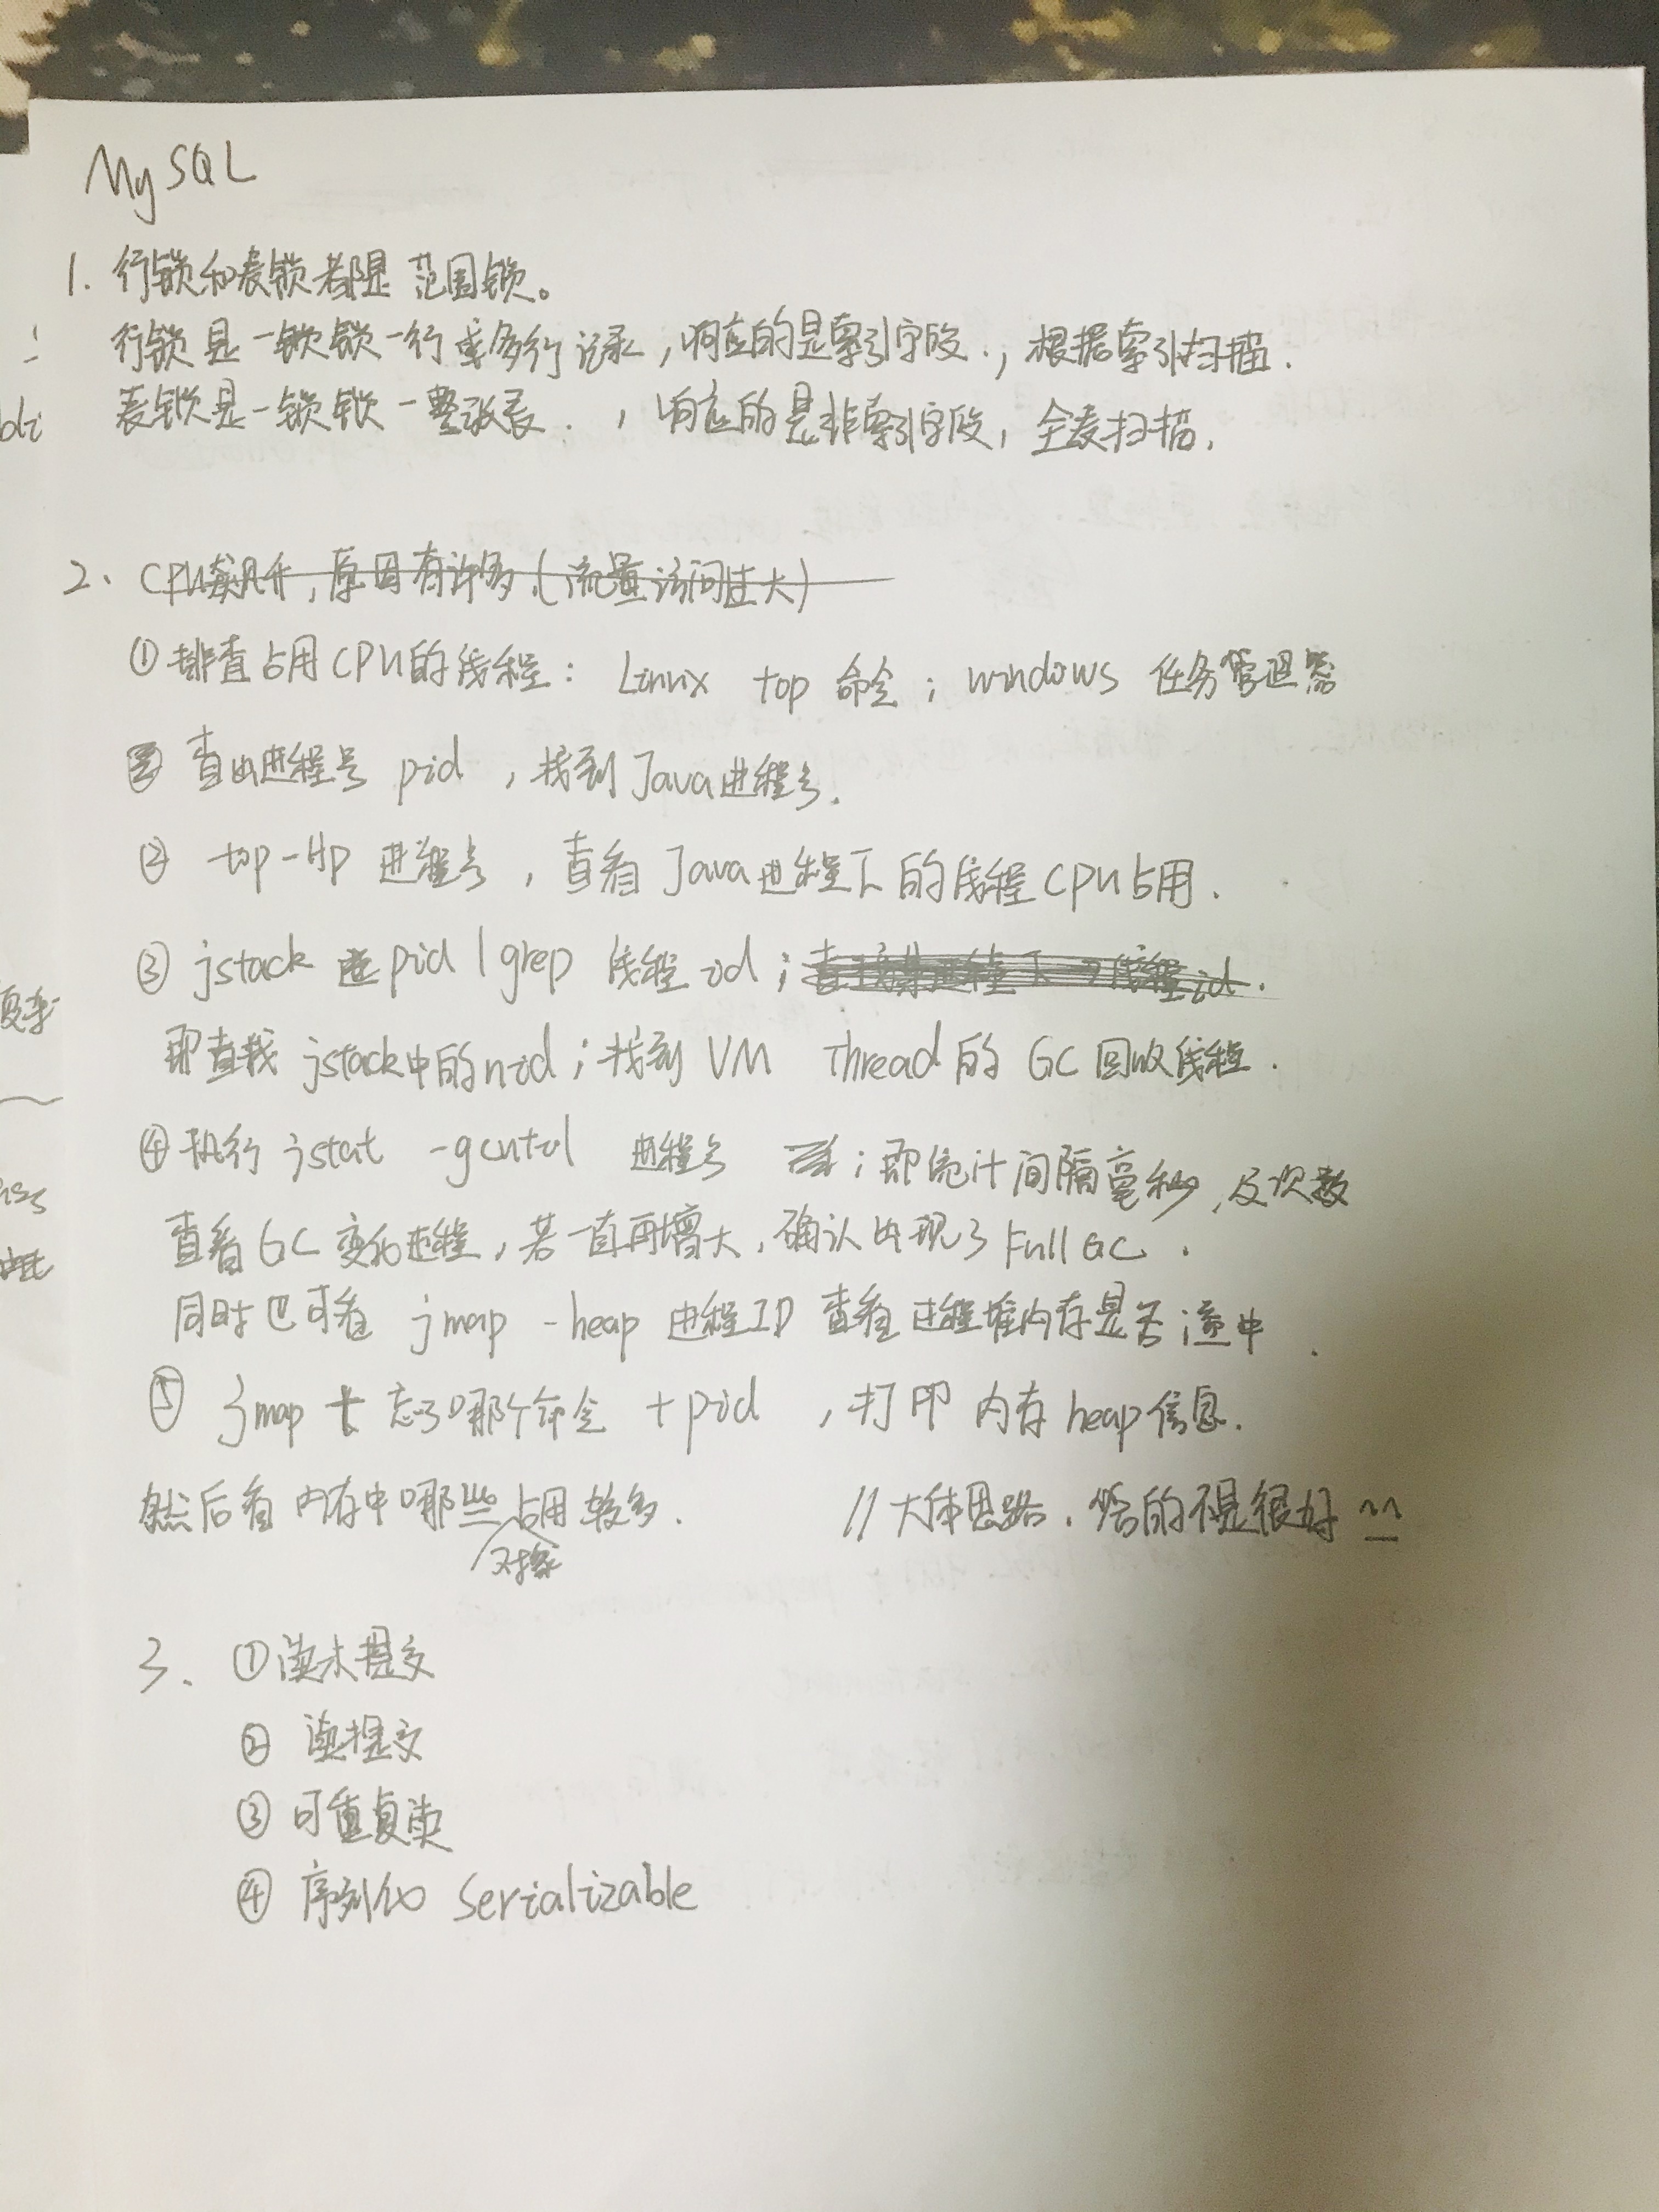 MySQL
1. 行锁和表锁都是 范围锁。
行锁是一锁锁一行或多行记录,响应的是索引字段.,根据索引扫描.
表锁是一锁锁一整张表.,响应的是非索引字段,全表扫描.
2、CPU飙升,原因有许多.(流量访问过大)
①排查占用CPU的线程: Linux top 命令; windows 任务管理器
查出进程号 pid ,找到Java进程号.
② top -Hp 进程号 ,查看Java进程下的线程CPU占用.
③ jstack pid | grep 线程id;
即查找jstack中的nid;找到 VM Thread的 GC 回收线程.
④执行 jstat -gcutil 进程号 ;即统计间隔毫秒,及次数
查看GC变化进程,若一直再增大,确认出现了Full GC.
同时也可看 jmap -heap 进程ID 查看进程堆内存是否适中.
⑤ jmap + 忘了哪个命令 + pid ,打印内存heap信息.
然后看内存中哪些占用较多. //大体思路.答的不是很好 ^^
对象
3、①读未提交
② 读提交
③ 可重复读
④ 序列化 Serializable
bli
复杂